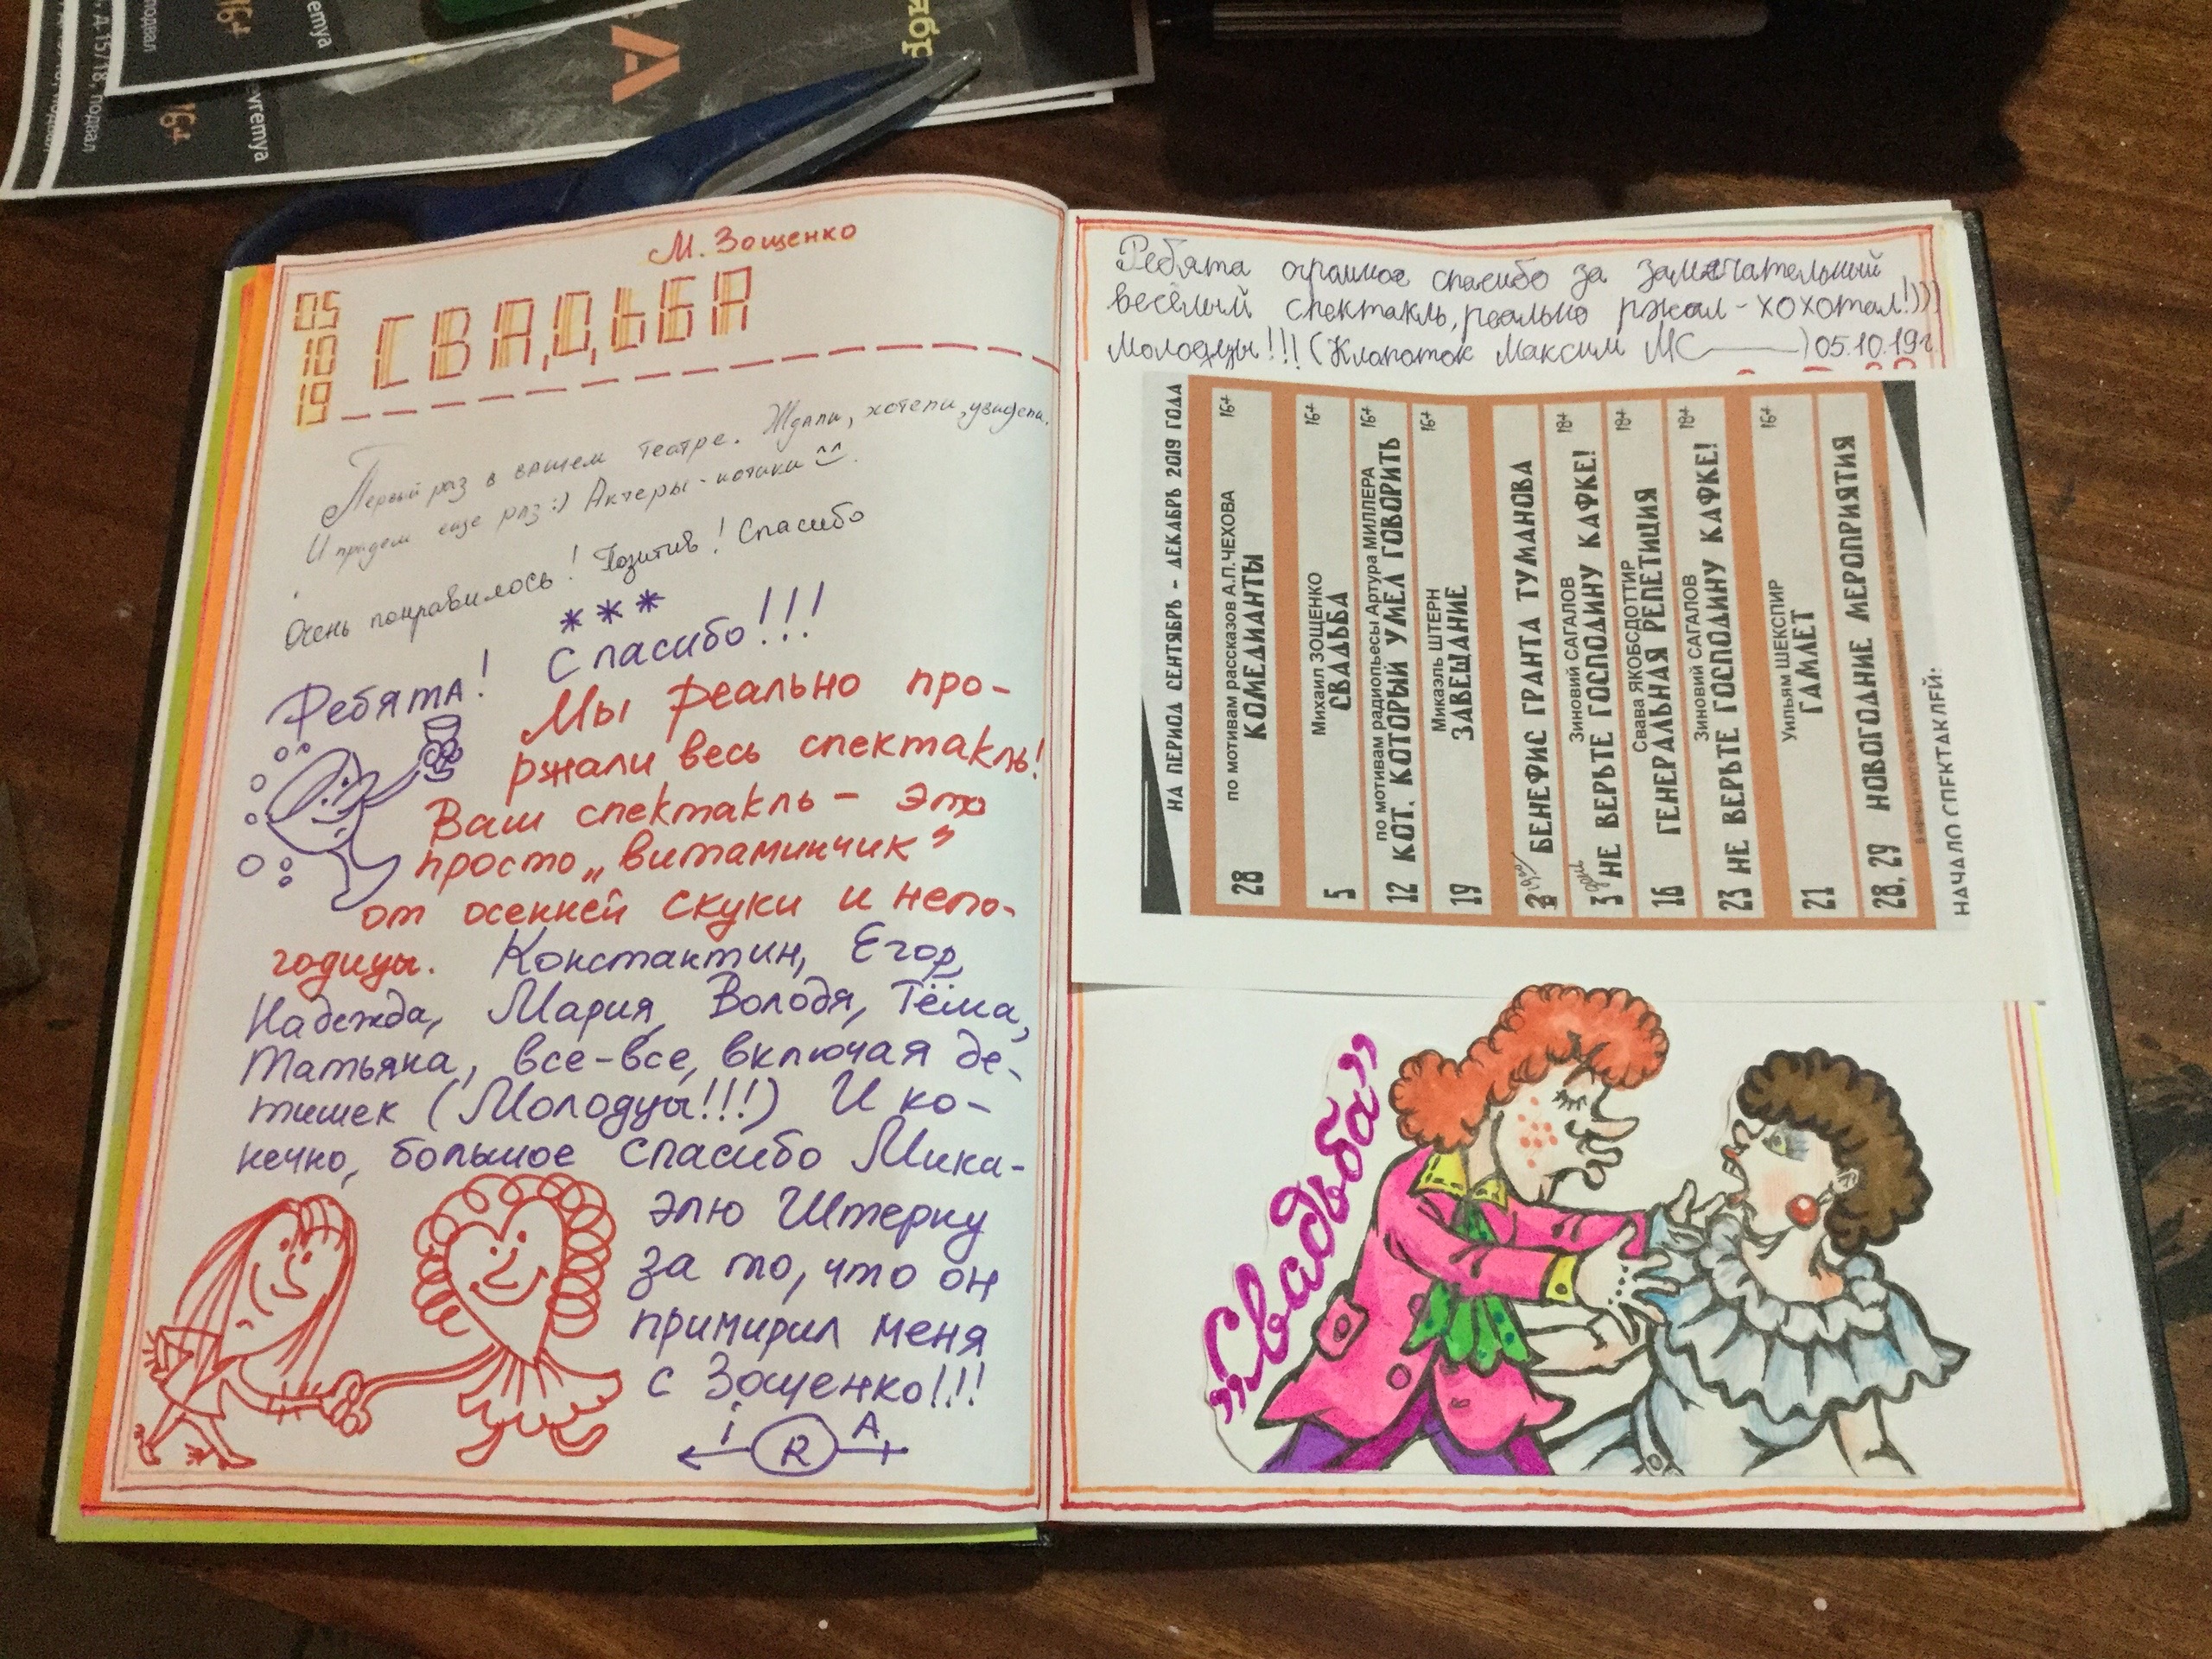 д 15/18, подвал
подвал
16+
16+
emya
vremya
А
ябр
М. Зощенко
05
10
19
СВАДЬБА
Первый раз в вашем театре. Ждали, хотели, увидели.
И придем еще раз :) Актеры - котики
Очень понравилось! Позитив! Спасибо
***
Ребята! Спасибо!!!
Мы реально про-
ржали весь спектакль!
Ваш спектакль - это
просто „витаминчик"
от осенней скуки и непо-
годицы. Константин, Егор,
Надежда, Мария, Володя, Тёма,
Татьяна, все-все, включая де-
тишек (Молодцы!!!) И ко-
нечно, большое спасибо Мика-
элю Штерну
за то, что он
примирил меня
с Зощенко!!!
i R A
Ребята огромное спасибо за замечательный
весёлый спектакль, реально ржал - хохотал!)))
Молодцы!!! (Клопоток Максим МС ) 05.10.19г.
НА ПЕРИОД СЕНТЯБРЬ - ДЕКАБРЬ 2019 ГОДА
по мотивам рассказов А.П.ЧЕХОВА 16+
28 КОМЕДИАНТЫ
Михаил ЗОЩЕНКО 16+
5 СВАДЬБА
по мотивам радиопьесы Артура МИЛЛЕРА 16+
12 КОТ. КОТОРЫЙ УМЕЛ ГОВОРИТЬ
Микаэль ШТЕРН 16+
19 ЗАВЕЩАНИЕ
2 19⁰⁰ БЕНЕФИС ГРАНТА ТУМАНОВА
Зиновий САГАЛОВ 18+
3 НЕ ВЕРЬТЕ ГОСПОДИНУ КАФКЕ!
Свава ЯКОБСДОТТИР 18+
16 ГЕНЕРАЛЬНАЯ РЕПЕТИЦИЯ
Зиновий САГАЛОВ 18+
23 НЕ ВЕРЬТЕ ГОСПОДИНУ КАФКЕ!
Уильям ШЕКСПИР 16+
21 ГАМЛЕТ
28, 29 НОВОГОДНИЕ МЕРОПРИЯТИЯ
НАЧАЛО СПЕКТАКЛЕЙ:
„Свадьба"